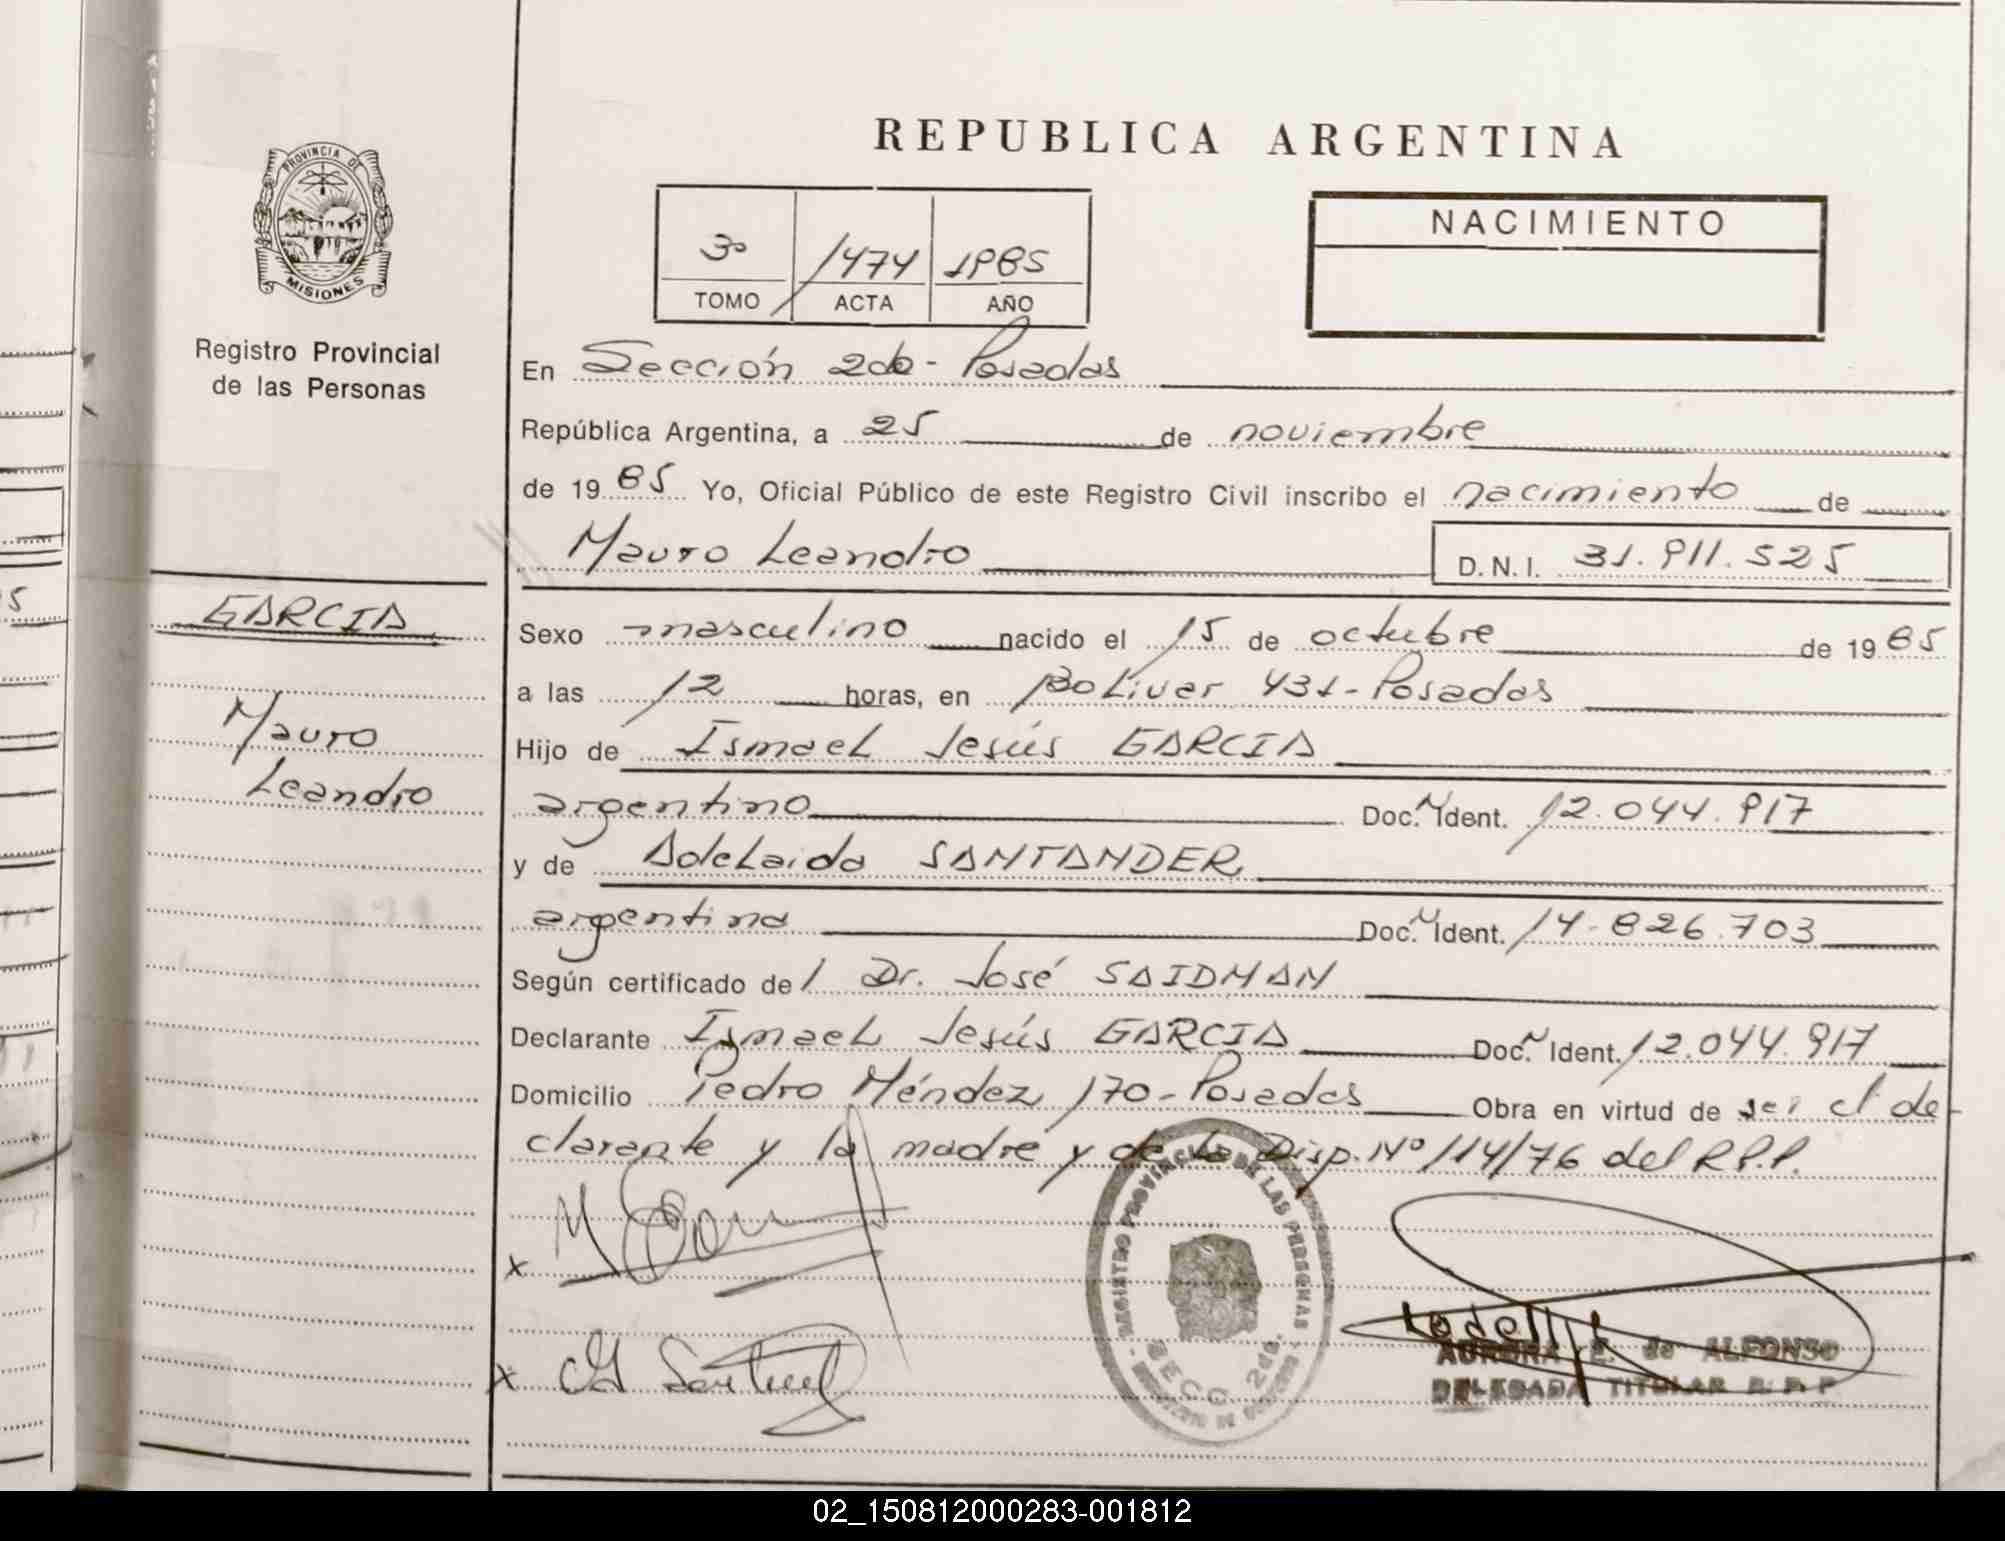 REPUBLICA ARGENTINA
PROVINCIA DE
MISIONES
Registro Provincial
de las Personas
3º 1474 1985
TOMO ACTA AÑO
NACIMIENTO
En Sección 2da - Posadas
República Argentina, a 25 de noviembre
de 19 85 Yo, Oficial Público de este Registro Civil inscribo el nacimiento de
Mauro Leandro D.N.I. 31.911.525
GARCIA
Mauro
Leandro
Sexo masculino nacido el 15 de octubre de 19 85
a las 12 horas, en Bolivar 431 - Posadas
Hijo de Ismael Jesús GARCIA
argentino Doc. N Ident. 12.044.917
y de Adelaida SANTANDER
argentina Doc. N Ident. 14.826.703
Según certificado de l Dr. José SAIDMAN
Declarante Ismael Jesús GARCIA Doc. N Ident. 12.044.917
Domicilio Pedro Méndez 170 - Posadas Obra en virtud de ser el de-
clarante y la madre y de la Disp. Nº 114/76 del R.P.P.
REGISTRO PROVINCIAL DE LAS PERSONAS
SECC. 2da.
AURORA E. de ALFONSO
DELEGADA TITULAR R. P. P.
02_150812000283-001812